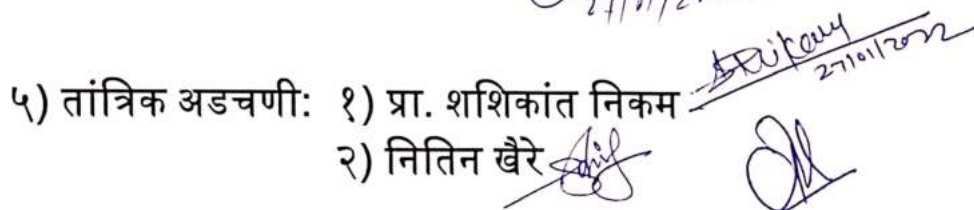 ५) तांत्रिक अडचणी: १) प्रा. शशिकांत निकम
27/01/2022
२) नितिन खैरे